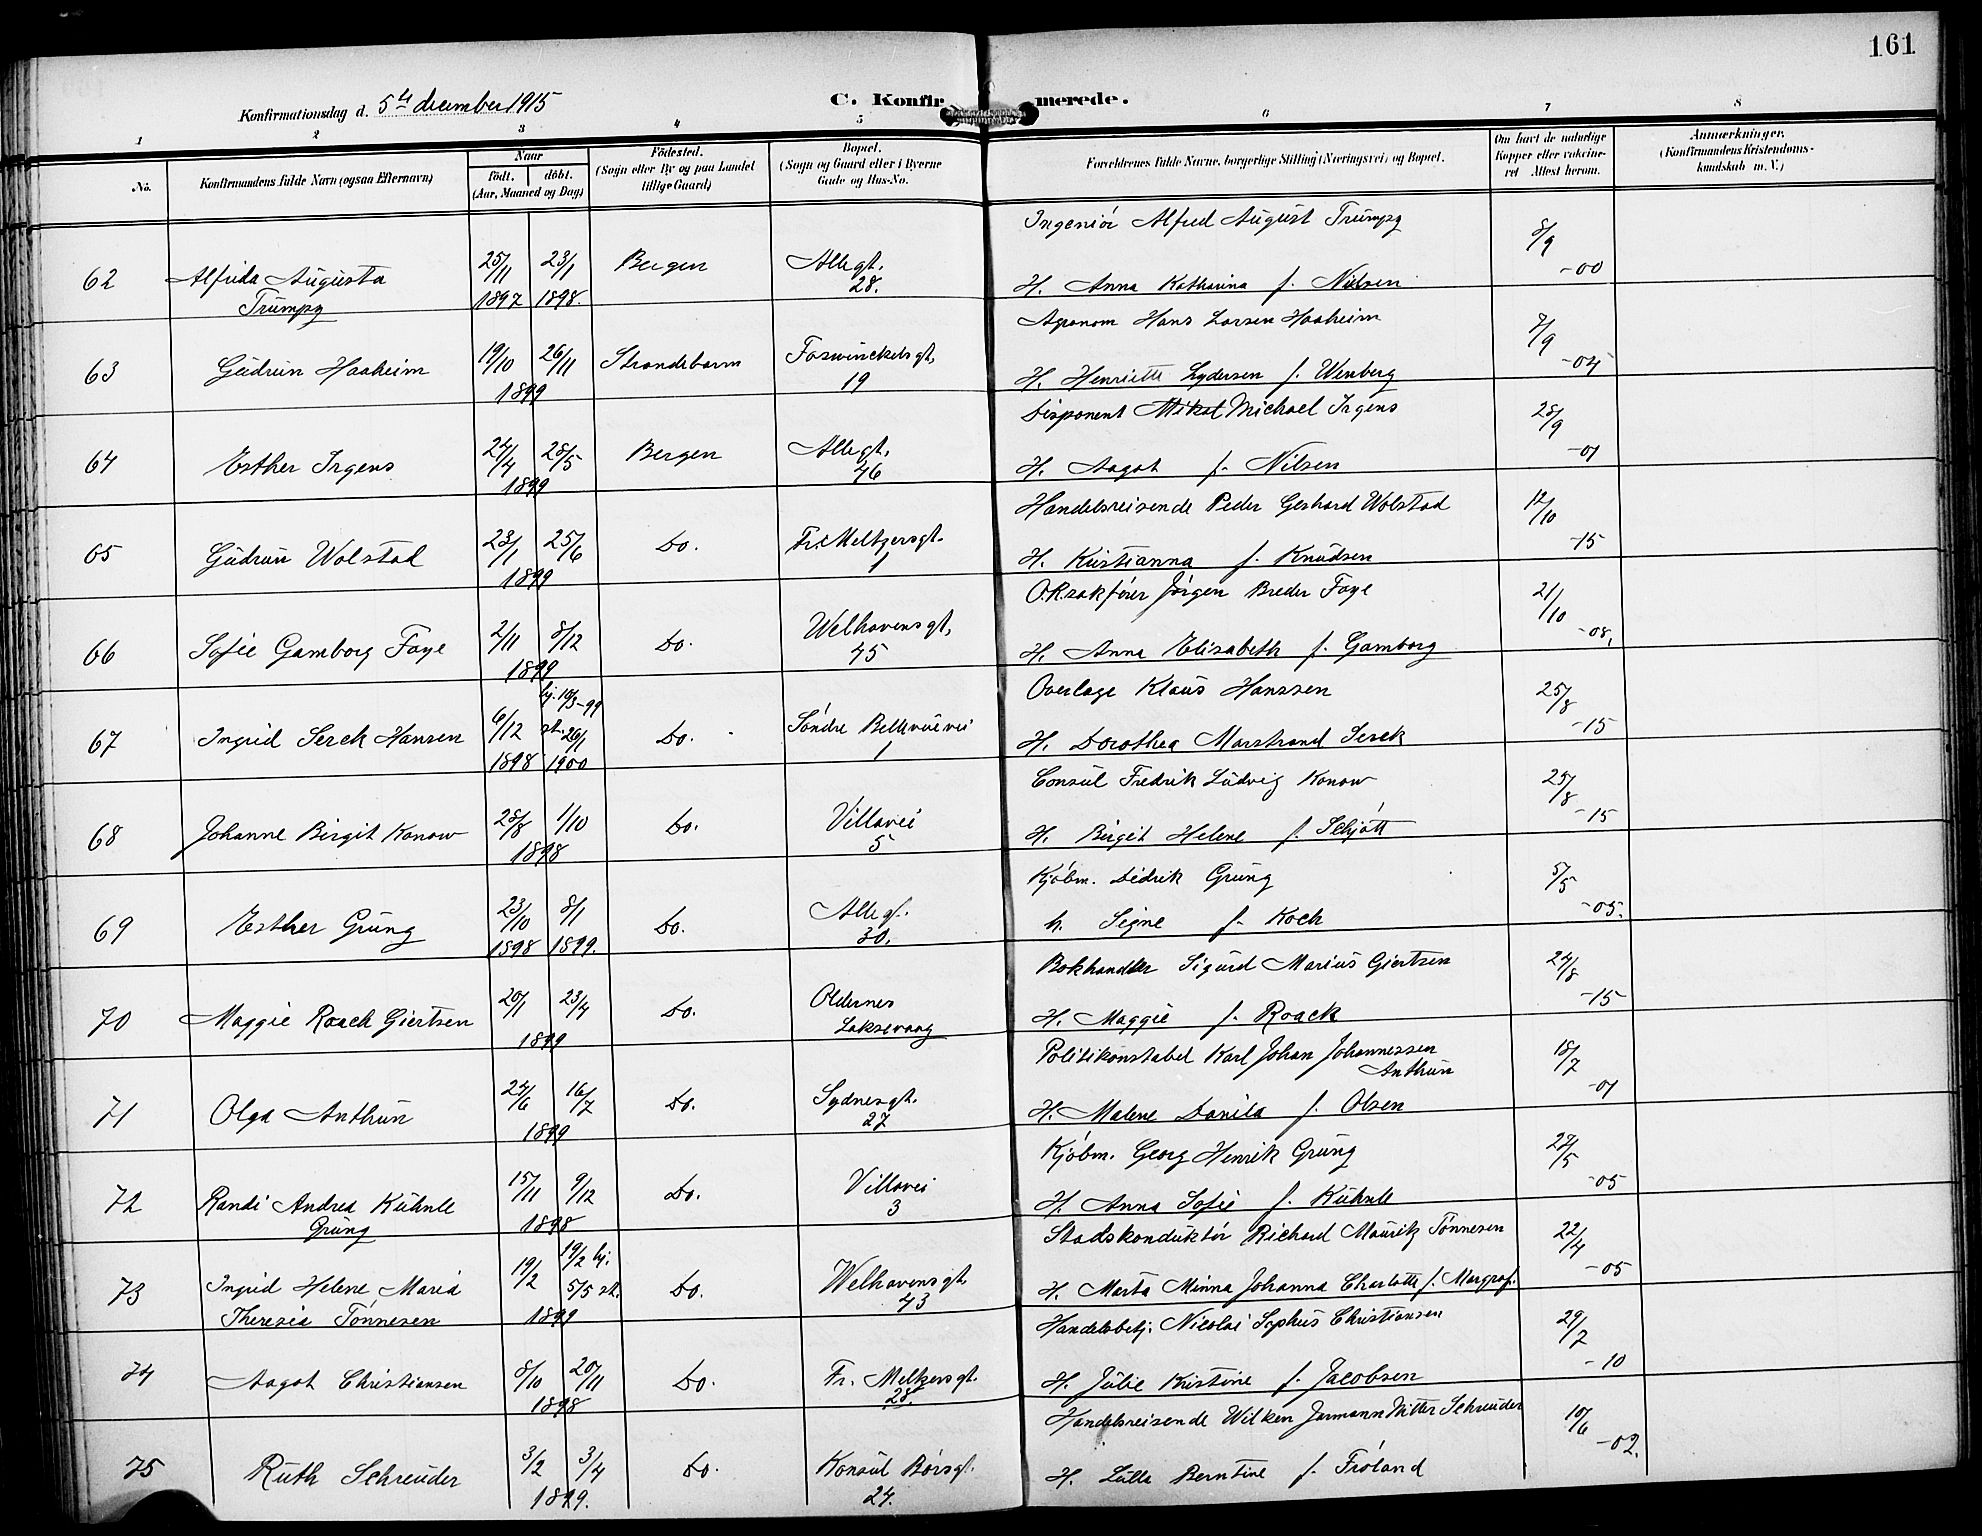 161
Konfirmationsdag d. 5te december 1915
C. Konfirmerede.
1 2 3 4 5 6 7 8
No.
Konfirmandens fulde Navn (ogsaa Efternavn)
Naar
födt. döbt.
(Aar, Maaned og Dag)
Födested.
(Sogn eller By og paa Landet
tillige Gaard)
Bopæl.
(Sogn og Gaard eller i Byerne
Gade og Hus-No.
Forældrenes fulde Navne, borgerlige Stilling (Næringsvei) og Bopæl.
Om havt de naturlige
Kopper eller vakcine-
ret Attest herom.
Anmærkninger.
(Konfirmandens Kristendoms-
kundskab m. V.)
Ingeniør Alfred August Trumpy 8/9
62 Alfrida Augusta 25/11 23/1 Bergen Allegt. -00
Trumpy 1897 1898. 28. H. Anna Katharina f. Nilsen
Agronom Hans Larsen Haaheim 7/9
63 Gudrun Haaheim 19/10 26/11 Strandebarm Foswinckelsgt. -04
1899 19 H. Henriette Lydersen f. Wenberg
Disponent Mikal Michael Irgens 28/9
64 Esther Irgens 24/4 28/5 Bergen Allegt. -01
1899 46 H. Aagot f. Nilsen
Handelsreisende Peder Gerhard Wolstad 12/10
65 Gudrun Wolstad 23/1 25/6 Do. Fr. Meltzersgt. -15
1899 1 H. Kristianna f. Knudsen
O.R.sakfører Jørgen Breder Faye 21/10
66 Sofie Gamborg Faye 2/11 8/12 Do. Welhavensgt. -08.
1899 45 H. Anna Elisabeth f. Gamborg
hj. 18/3-99 Overlæge Klaus Hanssen 25/8
67 Ingrid Serck Hansen 6/12 st. 26/1 Do. Søndre Bellevuevei -15
1898 1900 1 H. Dorothea Marstrand Serck
Consul Fredrik Ludvig Konow 25/8
68 Johanne Birgit Konow 28/8 1/10 Do. Villavei -15
1898 5 H. Birgit Helene f. Schjøtt
Kjøbm. Didrik Grung 5/5
69 Esther Grung 23/10 8/1 Do. Allegt. -05.
1898 1899. 30. h. Signe f. Koch
Bokhandler Sigurd Marius Giertsen 24/8
70 Maggie Roack Giertsen 20/1 23/4 Do. Oldernes -15
1899 Laksevaag H. Maggie f. Roack
Politikonstabel Karl Johan Johannessen 18/7
Anthun
71 Olga Anthun 24/6 16/7 Do. Sydnesgt. -01
1899 27 H. Malene Danila f. Olsen
Kjøbm. Georg Henrik Grung 28/5
72 Randi Andrea Kuhnle 15/11 9/12 Do. Villavei -05
Grung 1898 3 H. Anna Sofie f. Kuhnle
Stadskonduktør Richard Mauritz Tønnesen 22/4
73 Ingrid Helene Maria 19/2 19/2 hj. 5/5 st. Do. Welhavensgt. -05
Theresia Tønnesen 1899 43 H. Marta Minna Johanna Charlotte f. Margraf.
Handelsbetj. Nicolai Sophus Christiansen 29/7
74 Aagot Christiansen 8/10 20/11 Do. Fr. Meltzersgt. -10
1898 28. H. Julie Kristine f. Jacobsen
Handelsreisende Wilken Jarmann Nitter Schreuder 10/6
75 Ruth Schreuder 3/2 3/4 Do. Konsul Børsgt. -02.
1899. 24. H. Lulla Berntine f. Frøland